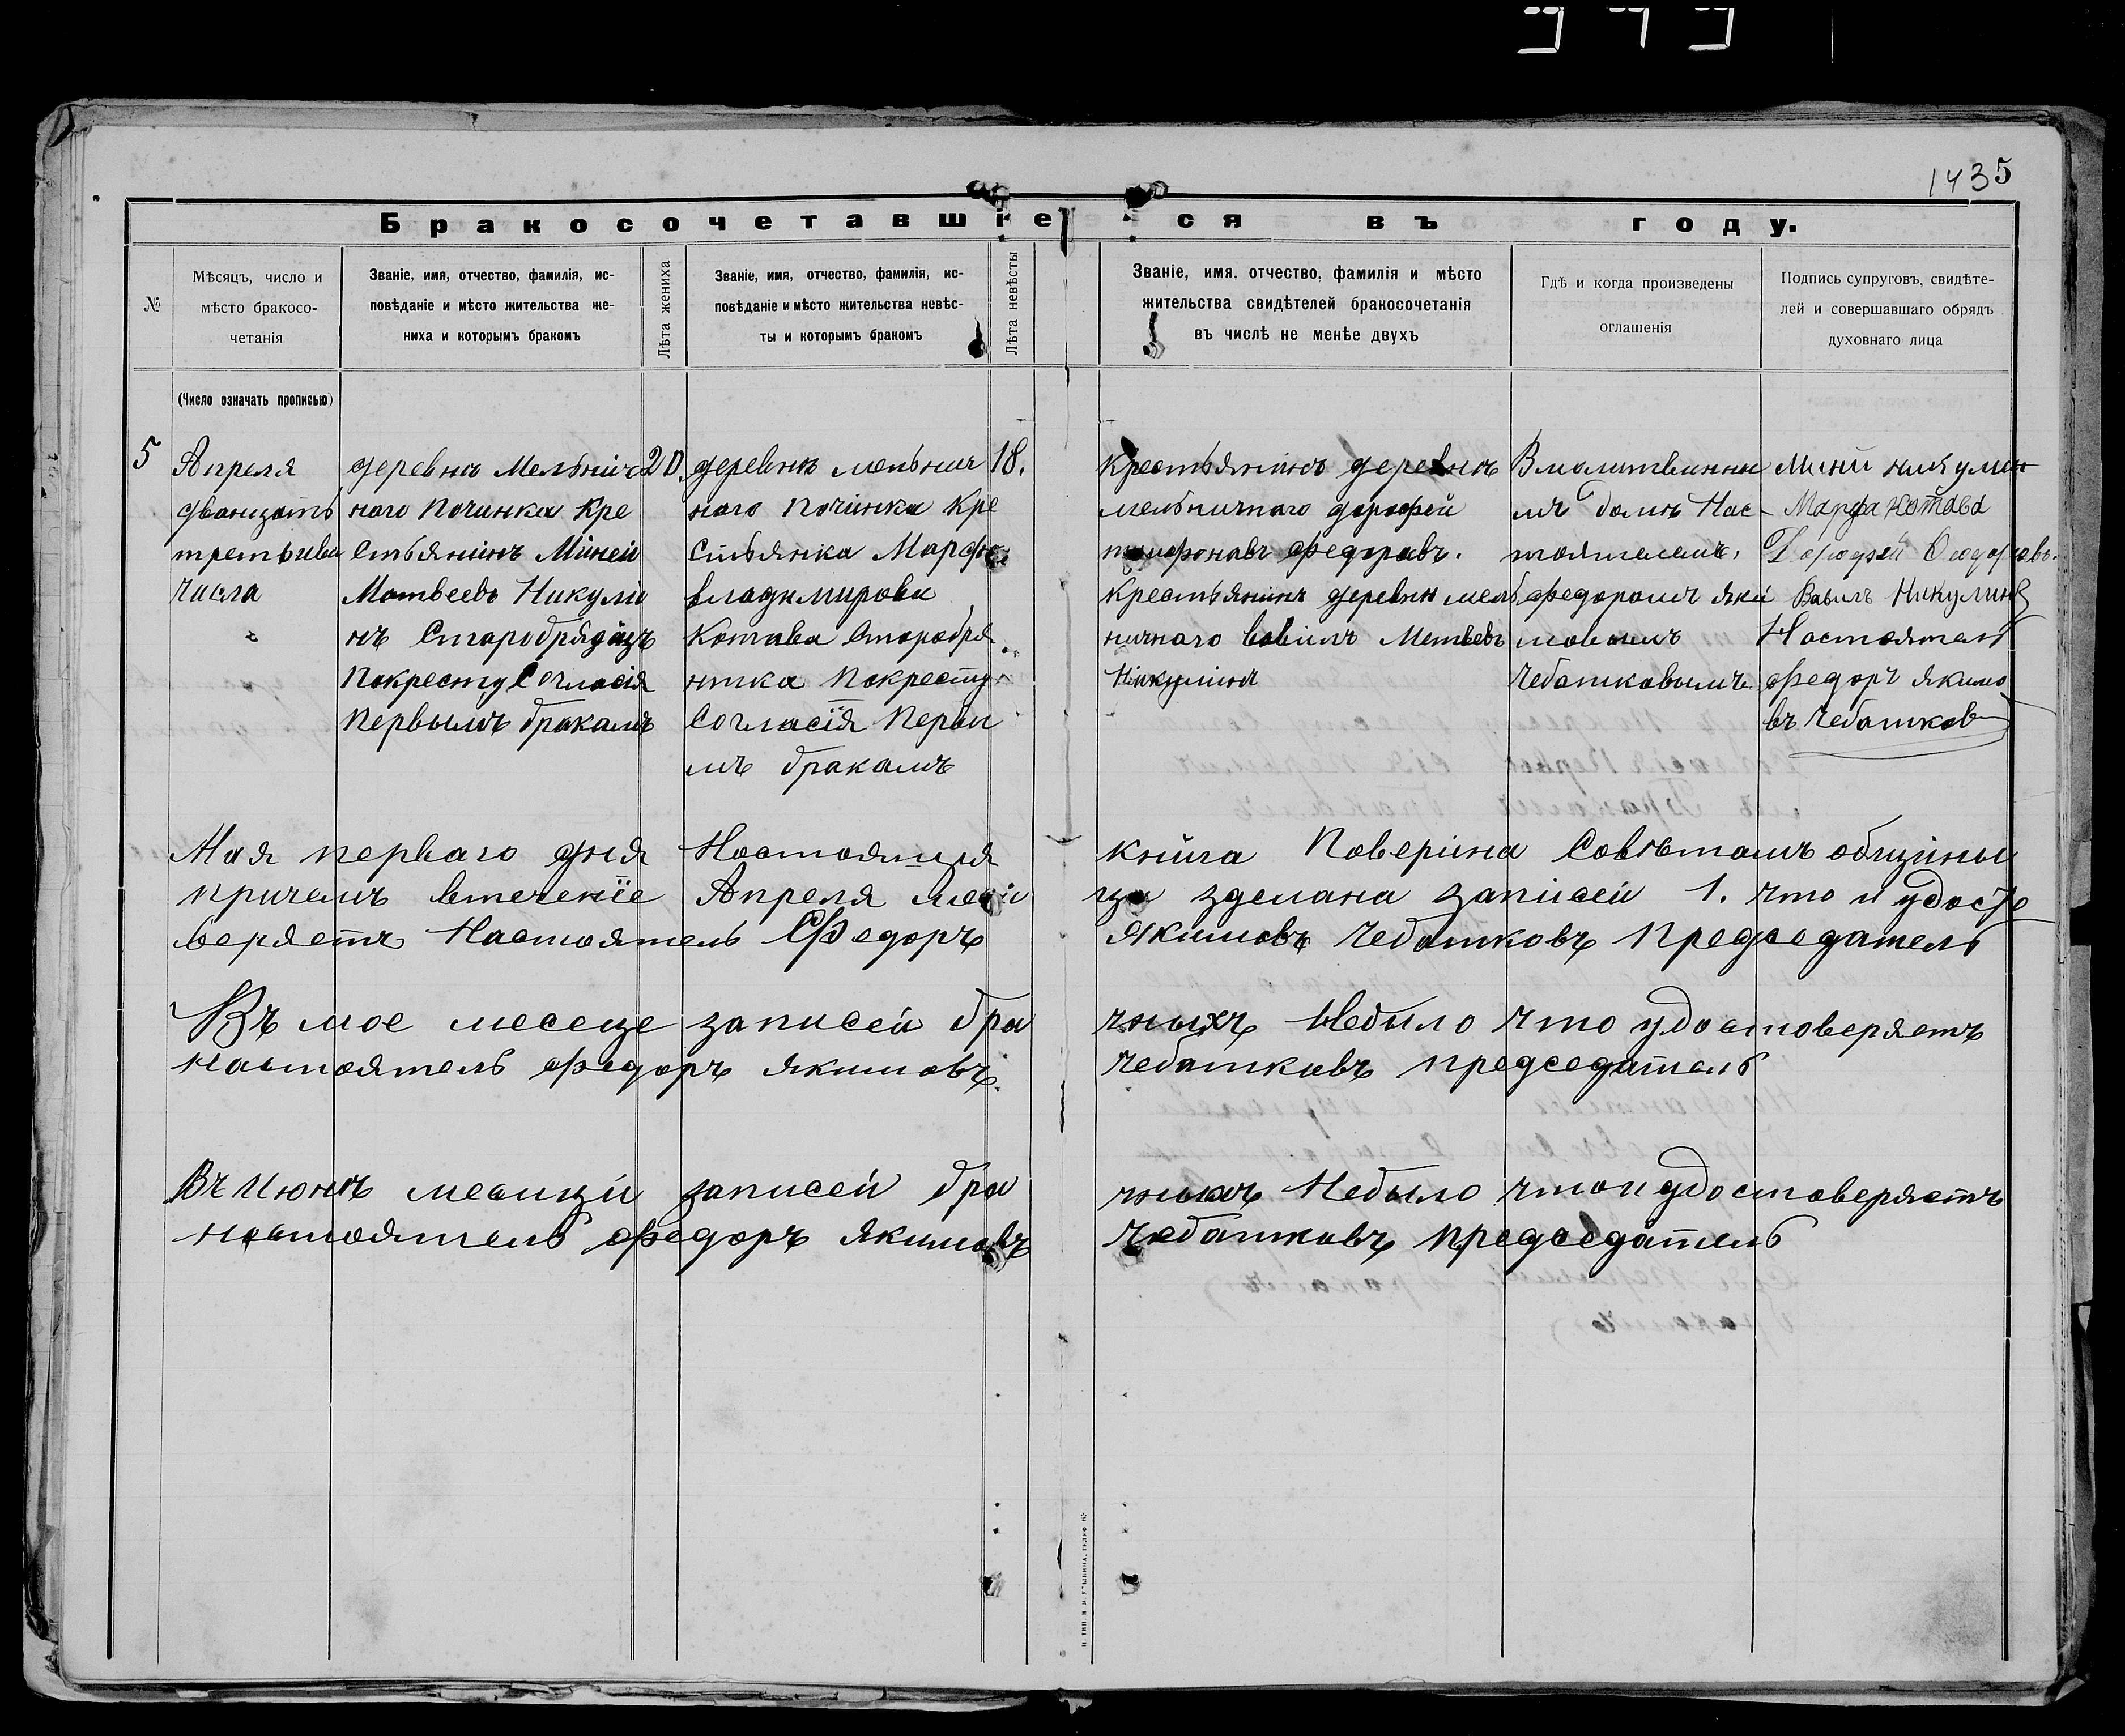 1435
Бракосочетавшіеся въ году.
№
Мѣсяцъ, число и
мѣсто бракосо-
четанія
Званіе, имя, отчество, фамилія, ис-
повѣданіе и мѣсто жительства же-
ниха и которымъ бракомъ
Лѣта жениха
Званіе, имя, отчество, фамилія, ис-
повѣданіе и мѣсто жительства невѣс-
ты и которымъ бракомъ
Лѣта невѣсты
Званіе, имя, отчество, фамилія и мѣсто
жительства свидѣтелей бракосочетанія
въ числѣ не менѣе двухъ
Гдѣ и когда произведены
оглашенія
Подпись супруговъ, свидѣте-
лей и совершавшаго обрядъ
духовнаго лица
(Число означать прописью)
5
Апреля
дванцать
третьива
числа
деревнъ Мельнич
наго Починка Кре
стьянинъ Миней
Матвеевъ Никули
нъ Старобрядецъ
Покресту Согласія
Первымъ бракамъ
20.
деревнъ мельнич
наго Починка Кре
стьянка Марфа
владимирова
Котава Старобря
нтка Покресту
Согласія Первы
мъ бракамъ
18.
Крестьянинъ деревнъ
мельничнаго дорофей
федоравъ.
Крестьянинъ деревни мель
ничнаго вавилъ Матвевъ
Никулинъ
Вмалитвинны
мъ домъ Нас-
тоятелемъ,
федорамъ яки
мовымъ
Чебатковымъ
Миней никулин
Марфа котава
Дорофей Федоравъ.
Вавилъ Никулинъ
Настоятель
федоръ якимо
въ Чебатков
Мая перваго дня Настоящия книга Поверина Совѣтамъ общины
причемъ втеченїе Апреля меси ца зделана записей 1. что и удосто
веряетъ Настоятель Федоръ Якимовъ Чебатковъ Председатель
Въ мае месеце записей бра чныхъ Небыло что удостоверяетъ
настоятель федоръ якимовъ чебатковъ председатель
Въ Июнъ месици записей бра чныхъ Небыло чтои удостоверяетъ
настоятель федоръ якимовъ Чебатковъ председатель